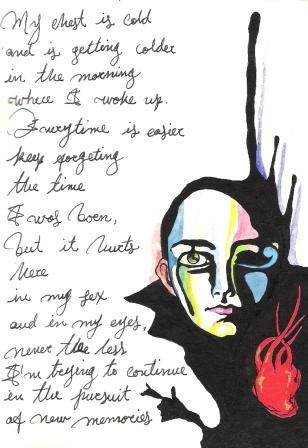 My chest is cold
and is getting colder
in the morning
where I woke up.
Everytime is easier
keep forgeting
the time
I was born,
but it hurts
here
in my sex
and in my eyes,
never the less
I'm trying to continue
in the pursuit
of new memories